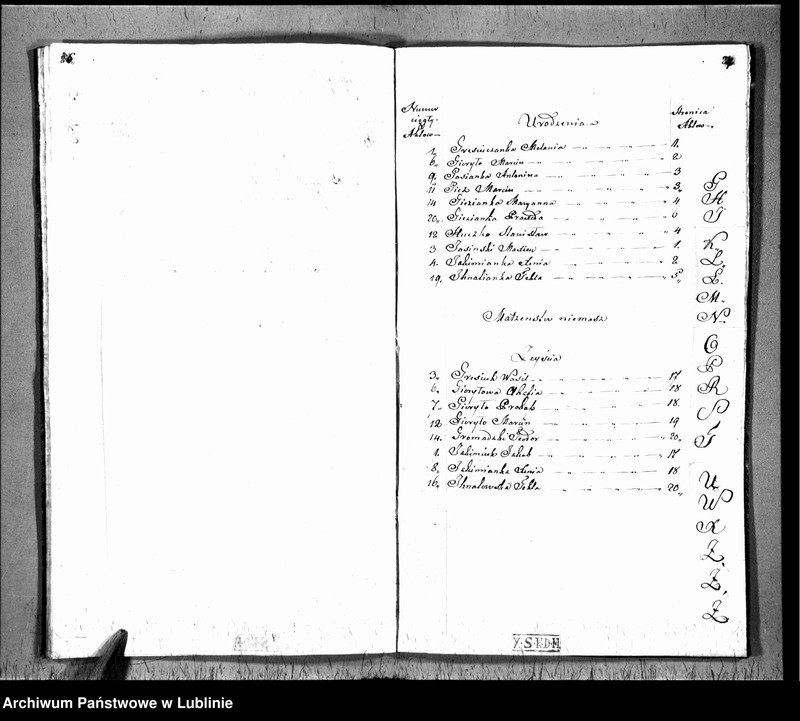 26
27
Numer
Aktow
Urodzenia
Stronica
Aktow
1. Gresiuczanka Melania 1.
6. Gieryło Marcin 2
9. Gasianka Antonina 3
11 Giez Marcin 3.
14 Giezianka Maryanna 4
20. Giezianka 6
12 Huczko Stanisław 4
3 Jasinski Maciey 1.
4. Jakimianka 2
19. Jhnalianka Tekla 5
Małzenstw niemasz
Zeyścia
3. Gresiuk Wasil 17
6. Gieryłowa 18
7. Gieryło Prokop 18.
12 Gieryło Marcin 19
14. Gromadzki Teodor 20
1. Jakimiuk Jakób 17
8. Jakimianka 18
16. Jhnatowska Tekla 20
G
H
J
K
L
Ł
M
N
O
P
R
S
T
U
W
X
Z
Z
Z
Z·S·K·D·N
Archiwum Państwowe w Lublinie